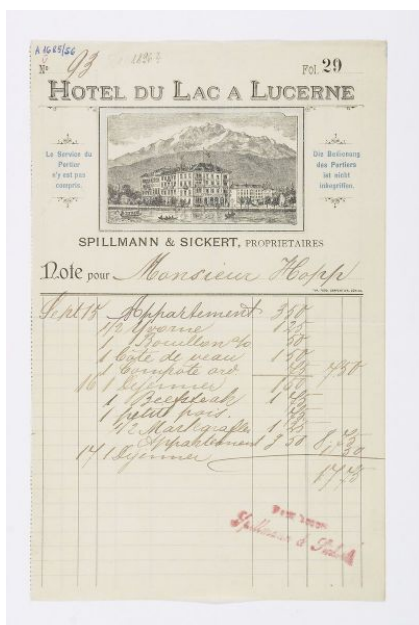 A 1685/56
No 93 1896?
Fol. 29
HOTEL DU LAC A LUCERNE
Le Service du
Portier
n'y est pas
compris.
Die Bedienung
des Portiers
ist nicht
inbegriffen.
SPILLMANN & SICKERT, PROPRIETAIRES
Note pour Monsieur Hopp
Sept 15 Appartement 3 50
1/2 Yvorne 1 25
1 Bouillon 50
1 Côte de veau 1 50
1 Compote 75 7 50
16 1 Dejeuner 1 50
1 Beefsteak 1 75
1 petits pois 75
1/2 Markgräfler 1 25
Appartement 3 50 8,75
17 1 Dejeuner 1 50
17 75
Pour acquit
Spillmann & Sickert